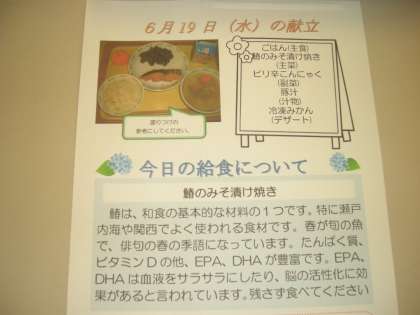 6月19日(水)の献立
ごはん(主食)
鰆のみそ漬け焼き
(主菜)
ピリ辛こんにゃく
(副菜)
豚汁
(汁物)
冷凍みかん
(デザート)
盛りつけの
参考にしてください。
今日の給食について
鰆のみそ漬け焼き
鰆は、和食の基本的な材料の1つです。特に瀬戸
内海や関西でよく使われる食材です。春が旬の魚
で、俳句の春の季語になっています。たんぱく質、
ビタミンDの他、EPA、DHAが豊富です。EPA、
DHAは血液をサラサラにしたり、脳の活性化に効
果があると言われています。残さず食べてください